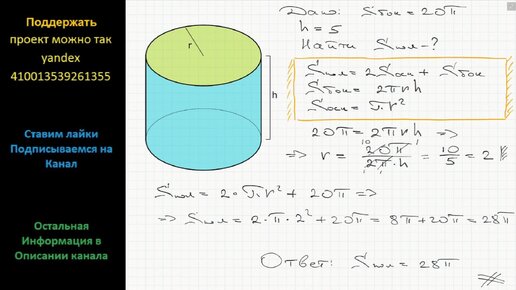 Поддержать
проект можно так
yandex
410013539261355
Ставим лайки
Подписываемся на
Канал
Остальная
Информация в
Описании канала
r
h
Дано: Sбок = 20π
h = 5
Найти Sпол - ?
Sпол = 2Sосн + Sбок
Sбок = 2πrh
Sосн = π·r²
20π = 2πrh =>
=> r = 20π / 2π·h = 10/5 = 2
Sпол = 2·π·r² + 20π =>
=> Sпол = 2·π·2² + 20π = 8π + 20π = 28π
Ответ: Sпол = 28π